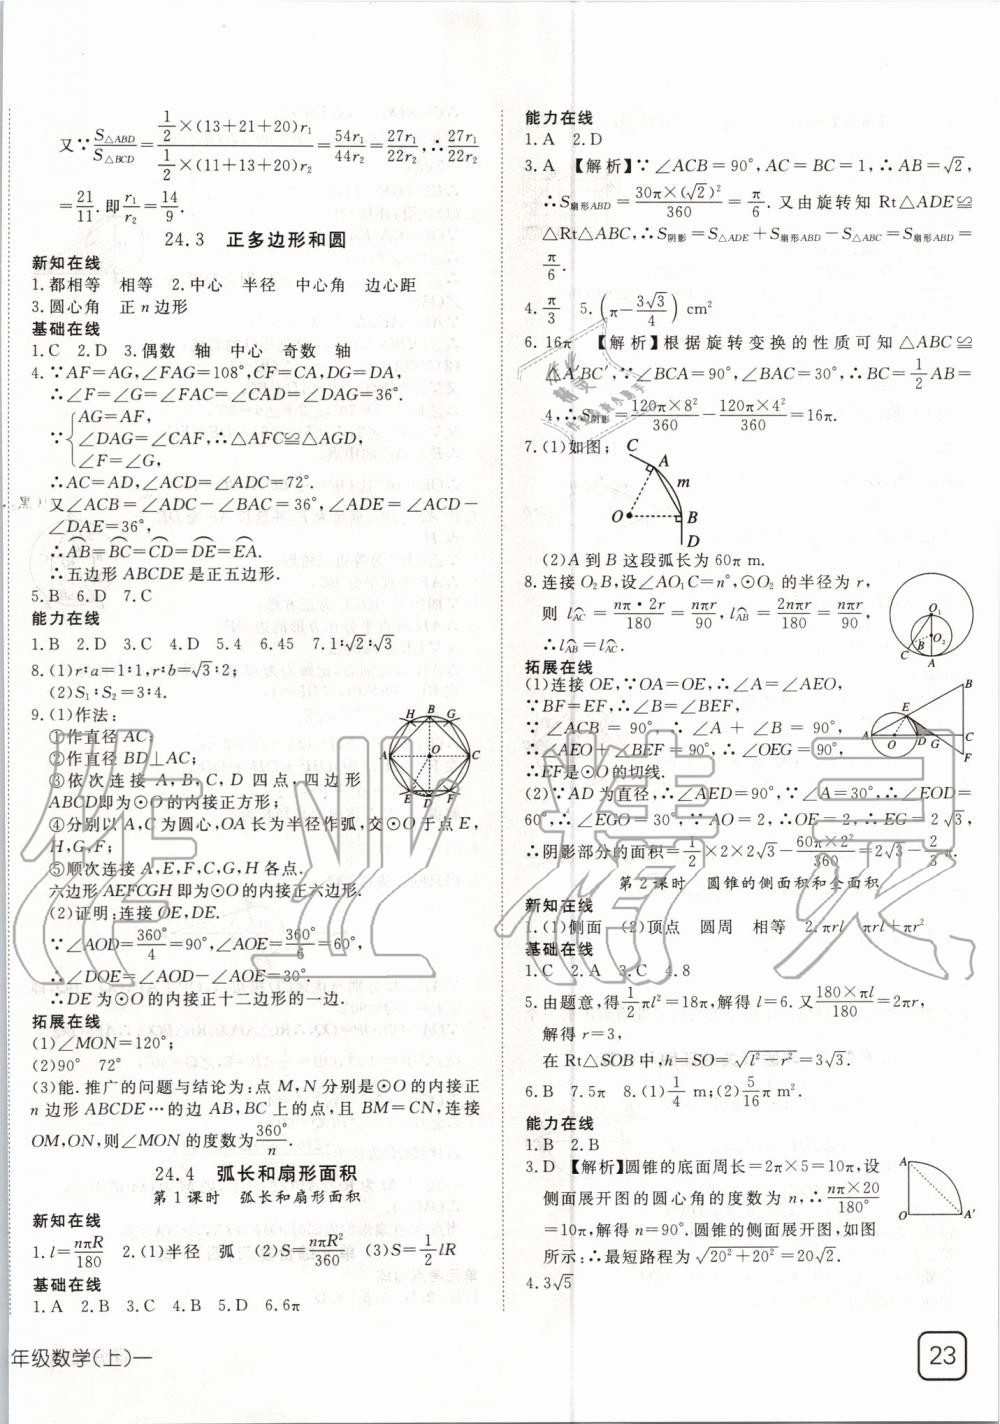 又∵S△ABD/S△BCD=(1/2×(13+21+20)r₁)/(1/2×(11+13+20)r₂)=54r₁/44r₂=27r₁/22r₂,∴27r₁/22r₂
=21/11.即r₁/r₂=14/9.
24.3 正多边形和圆
新知在线
1.都相等 相等 2.中心 半径 中心角 边心距
3.圆心角 正n边形
基础在线
1.C 2.D 3.偶数 轴 中心 奇数 轴
4.∵AF=AG,∠FAG=108°,CF=CA,DG=DA,
∴∠F=∠G=∠FAC=∠CAD=∠DAG=36°.
AG=AF,
∵{∠DAG=∠CAF,∴△AFC≌△AGD,
∠F=∠G,
∴AC=AD,∠ACD=∠ADC=72°.
又∠ACB=∠ADC-∠BAC=36°,∠ADE=∠ACD-
∠DAE=36°,
∴AB=BC=CD=DE=EA.
∴五边形ABCDE是正五边形.
5.B 6.D 7.C
能力在线
1.B 2.D 3.C 4.D 5.4 6.45 7.1∶√2∶√3
8.(1)r∶a=1∶1,r∶b=√3∶2;
(2)S₁∶S₂=3∶4.
9.(1)作法:
①作直径AC;
②作直径BD⊥AC;
③依次连接A,B,C,D四点,四边形
ABCD即为⊙O的内接正方形;
④分别以A,C为圆心,OA长为半径作弧,交⊙O于点E,
H,G,F;
⑤顺次连接A,E,F,C,G,H各点.
六边形AEFCGH即为⊙O的内接正六边形.
(2)证明:连接OE,DE.
∵∠AOD=360°/4=90°,∠AOE=360°/6=60°,
∴∠DOE=∠AOD-∠AOE=30°.
∴DE为⊙O的内接正十二边形的一边.
拓展在线
(1)∠MON=120°;
(2)90° 72°
(3)能.推广的问题与结论为:点M,N分别是⊙O的内接正
n边形ABCDE…的边AB,BC上的点,且BM=CN,连接
OM,ON,则∠MON的度数为360°/n.
24.4 弧长和扇形面积
第1课时 弧长和扇形面积
新知在线
1.l=nπR/180 2.(1)半径 弧 (2)S=nπR²/360 (3)S=1/2lR
基础在线
1.A 2.B 3.C 4.B 5.D 6.6π
年级数学(上)—
能力在线
1.A 2.D
3.A 【解析】∵∠ACB=90°,AC=BC=1,∴AB=√2,
∴S扇形ABD=30π×(√2)²/360=π/6.又由旋转知Rt△ADE≌
△RtABC,∴S阴影=S△ADE+S扇形ABD-S△ABC=S扇形ABD=
π/6.
4.π/3 5.(π-3√3/4) cm²
6.16π 【解析】根据旋转变换的性质可知△ABC≌
△A′BC′,∵∠BCA=90°,∠BAC=30°,∴BC=1/2AB=
4,∴S阴影=120π×8²/360-120π×4²/360=16π.
7.(1)如图;
(2)A到B这段弧长为60π m.
8.连接O₂B,设∠AO₁C=n°,⊙O₂的半径为r,
则lAC=nπ·2r/180=nπr/90,lAB=2nπr/180=nπr/90,
∴lAB=lAC.
拓展在线
(1)连接OE,∵OA=OE,∴∠A=∠AEO,
∵BF=EF,∴∠B=∠BEF,
∵∠ACB=90°,∴∠A+∠B=90°,
∴∠AEO+∠BEF=90°,∴∠OEG=90°,
∴EF是⊙O的切线.
(2)∵AD为直径,∴∠AED=90°,∵∠A=30°,∴∠EOD=
60°,∴∠EGO=30°,∵AO=2,∴OE=2,∴EG=2√3,
∴阴影部分的面积=1/2×2×2√3-60π×2²/360=2√3-2/3π.
第2课时 圆锥的侧面积和全面积
新知在线
1.(1)侧面 (2)顶点 圆周 相等 2.πrl πrl+πr²
基础在线
1.C 2.A 3.C 4.8
5.由题意,得1/2πl²=18π,解得l=6.又180×πl/180=2πr,
解得r=3,
在Rt△SOB中,h=SO=√(l²-r²)=3√3.
6.B 7.5π 8.(1)1/4 m;(2)5/16π m².
能力在线
1.B 2.B
3.D 【解析】圆锥的底面周长=2π×5=10π,设
侧面展开图的圆心角的度数为n,∴nπ×20/180°
=10π,解得n=90°.圆锥的侧面展开图,如图
所示:∴最短路程为√(20²+20²)=20√2.
4.3√5
23